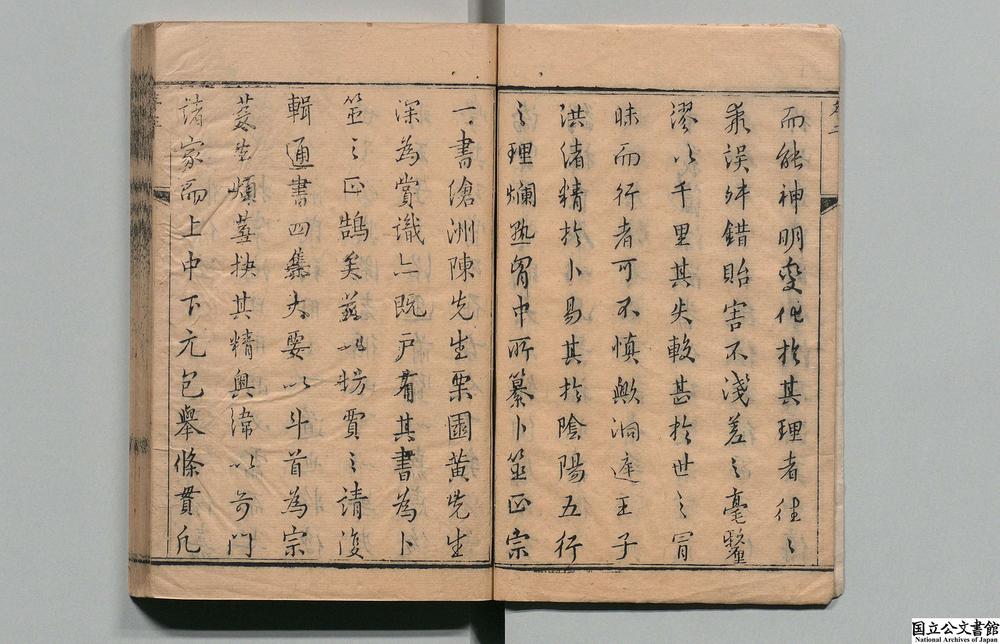 而能神明變化於其理者往〻
乘誤舛錯貽害不淺差之毫釐
謬以千里其失較甚於世之冐
昧而行者可不慎歟洞庭王子
洪緒精於卜易其於陰陽五行
之理爛熟胷中所纂卜筮正宗
一書滄洲陳先生栗園黃先生
深為賞識亦既戸有其書為卜
筮之正鵠矣茲以坊賈之請復
輯通書四集大要以斗首為宗
蓋生煩蓋抉其精奧緯以奇門
諸家而上中下元包舉條貫凡
国立公文書館
National Archives of Japan